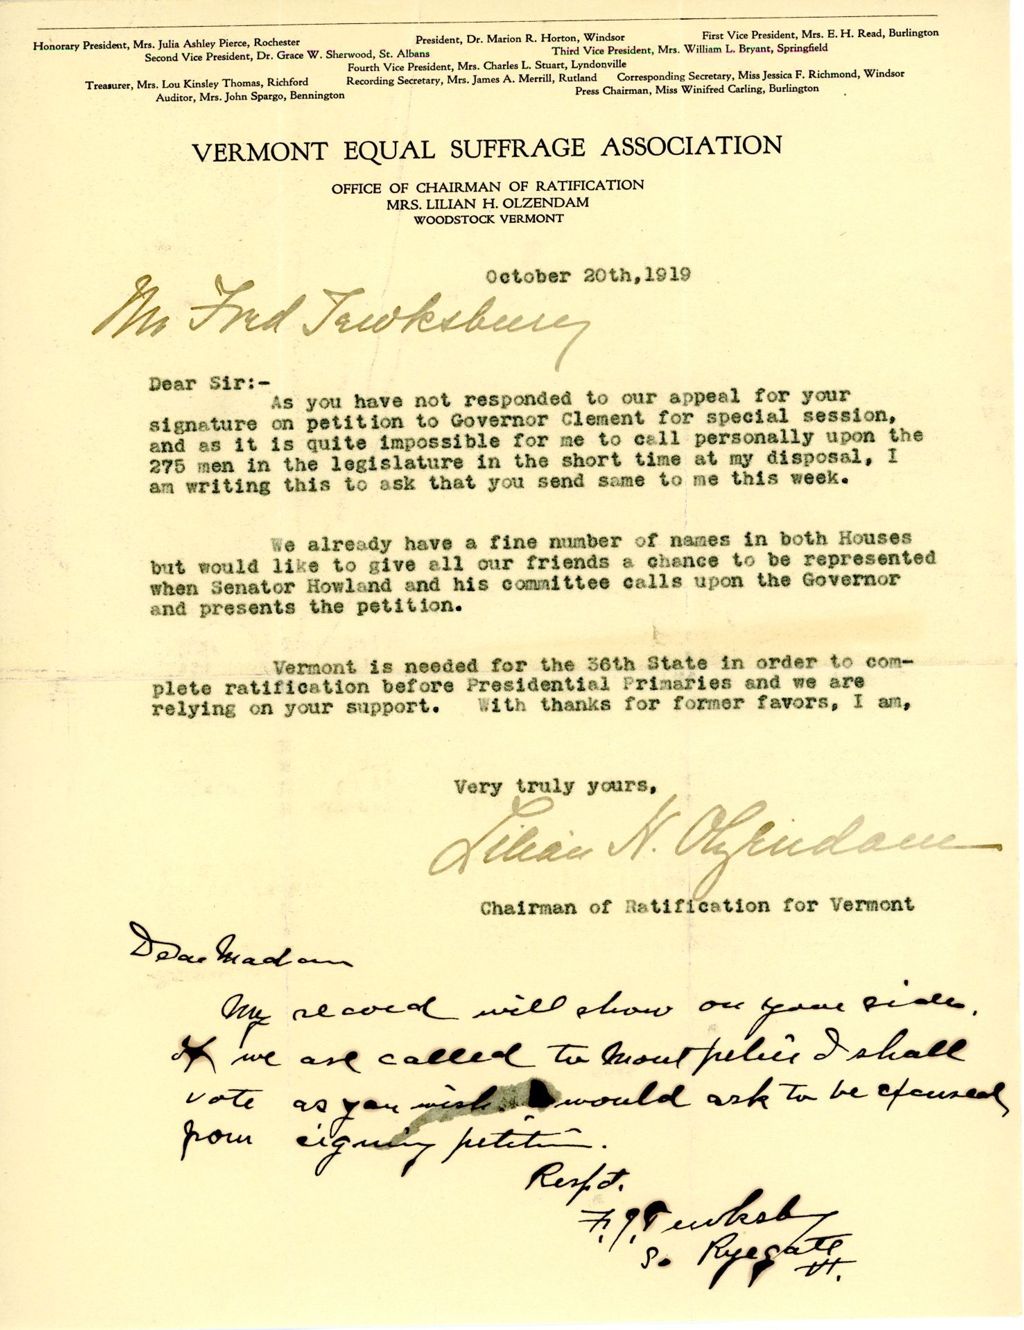 Honorary President, Mrs. Julia Ashley Pierce, Rochester President, Dr. Marion R. Horton, Windsor First Vice President, Mrs. E. H. Read, Burlington
Second Vice President, Dr. Grace W. Sherwood, St. Albans Third Vice President, Mrs. William L. Bryant, Springfield
Fourth Vice President, Mrs. Charles L. Stuart, Lyndonville
Treasurer, Mrs. Lou Kinsley Thomas, Richford Recording Secretary, Mrs. James A. Merrill, Rutland Corresponding Secretary, Miss Jessica F. Richmond, Windsor
Auditor, Mrs. John Spargo, Bennington Press Chairman, Miss Winifred Carling, Burlington
VERMONT EQUAL SUFFRAGE ASSOCIATION
OFFICE OF CHAIRMAN OF RATIFICATION
MRS. LILIAN H. OLZENDAM
WOODSTOCK VERMONT
October 20th,1919
Mr Fred Tewksbury
Dear Sir:-
As you have not responded to our appeal for your
signature on petition to Governor Clement for special session,
and as it is quite impossible for me to call personally upon the
275 men in the legislature in the short time at my disposal, I
am writing this to ask that you send same to me this week.
We already have a fine number of names in both Houses
but would like to give all our friends a chance to be represented
when Senator Howland and his committee calls upon the Governor
and presents the petition.
Vermont is needed for the 36th State in order to com-
plete ratification before Presidential Primaries and we are
relying on your support. With thanks for former favors, I am,
Very truly yours,
Lilian H. Olzendam
Chairman of Ratification for Vermont
Dear Madam
My record will show on your side.
If we are called to Montpelier I shall
vote as you wish. would ask to be excused
from signing petition.
Respt.
F. J. Tewksby
So Ryegate
Vt.